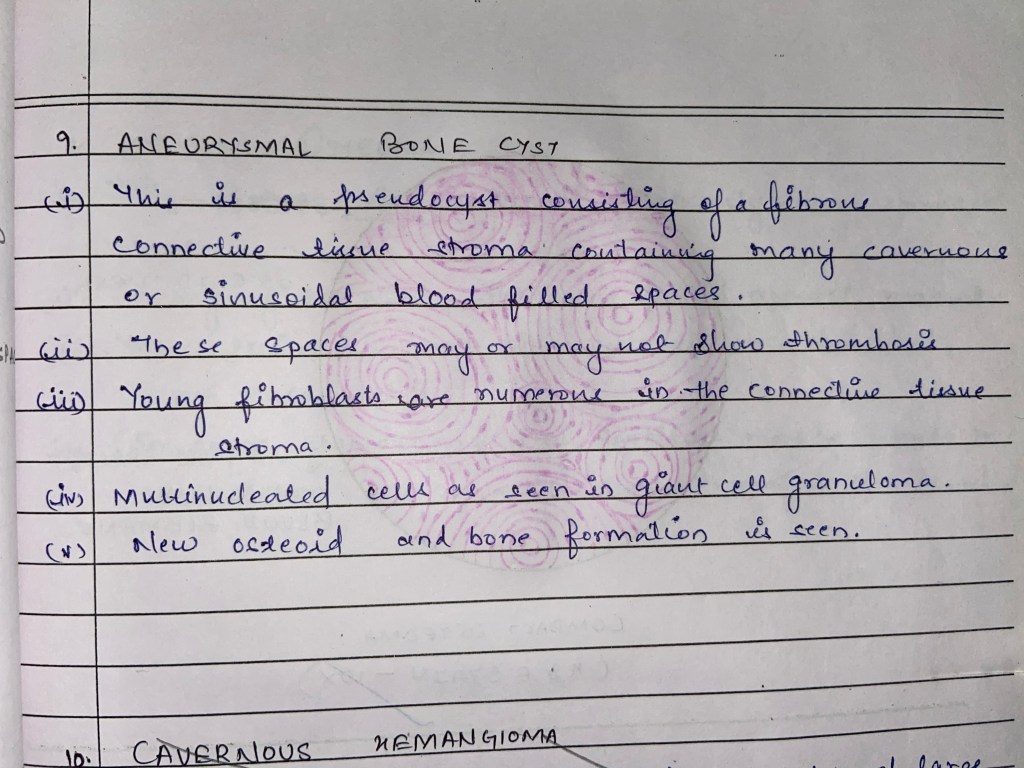 9. ANEURYSMAL BONE CYST
(i) This is a pseudocyst consisting of a fibrous
connective tissue stroma containing many cavernous
or sinusoidal blood filled spaces.
(ii) These spaces may or may not show thrombosis
(iii) Young fibroblasts are numerous in the connective tissue
stroma.
(iv) Multinucleated cells as seen in giant cell granuloma.
(v) New osteoid and bone formation is seen.
10. CAVERNOUS HEMANGIOMA
large